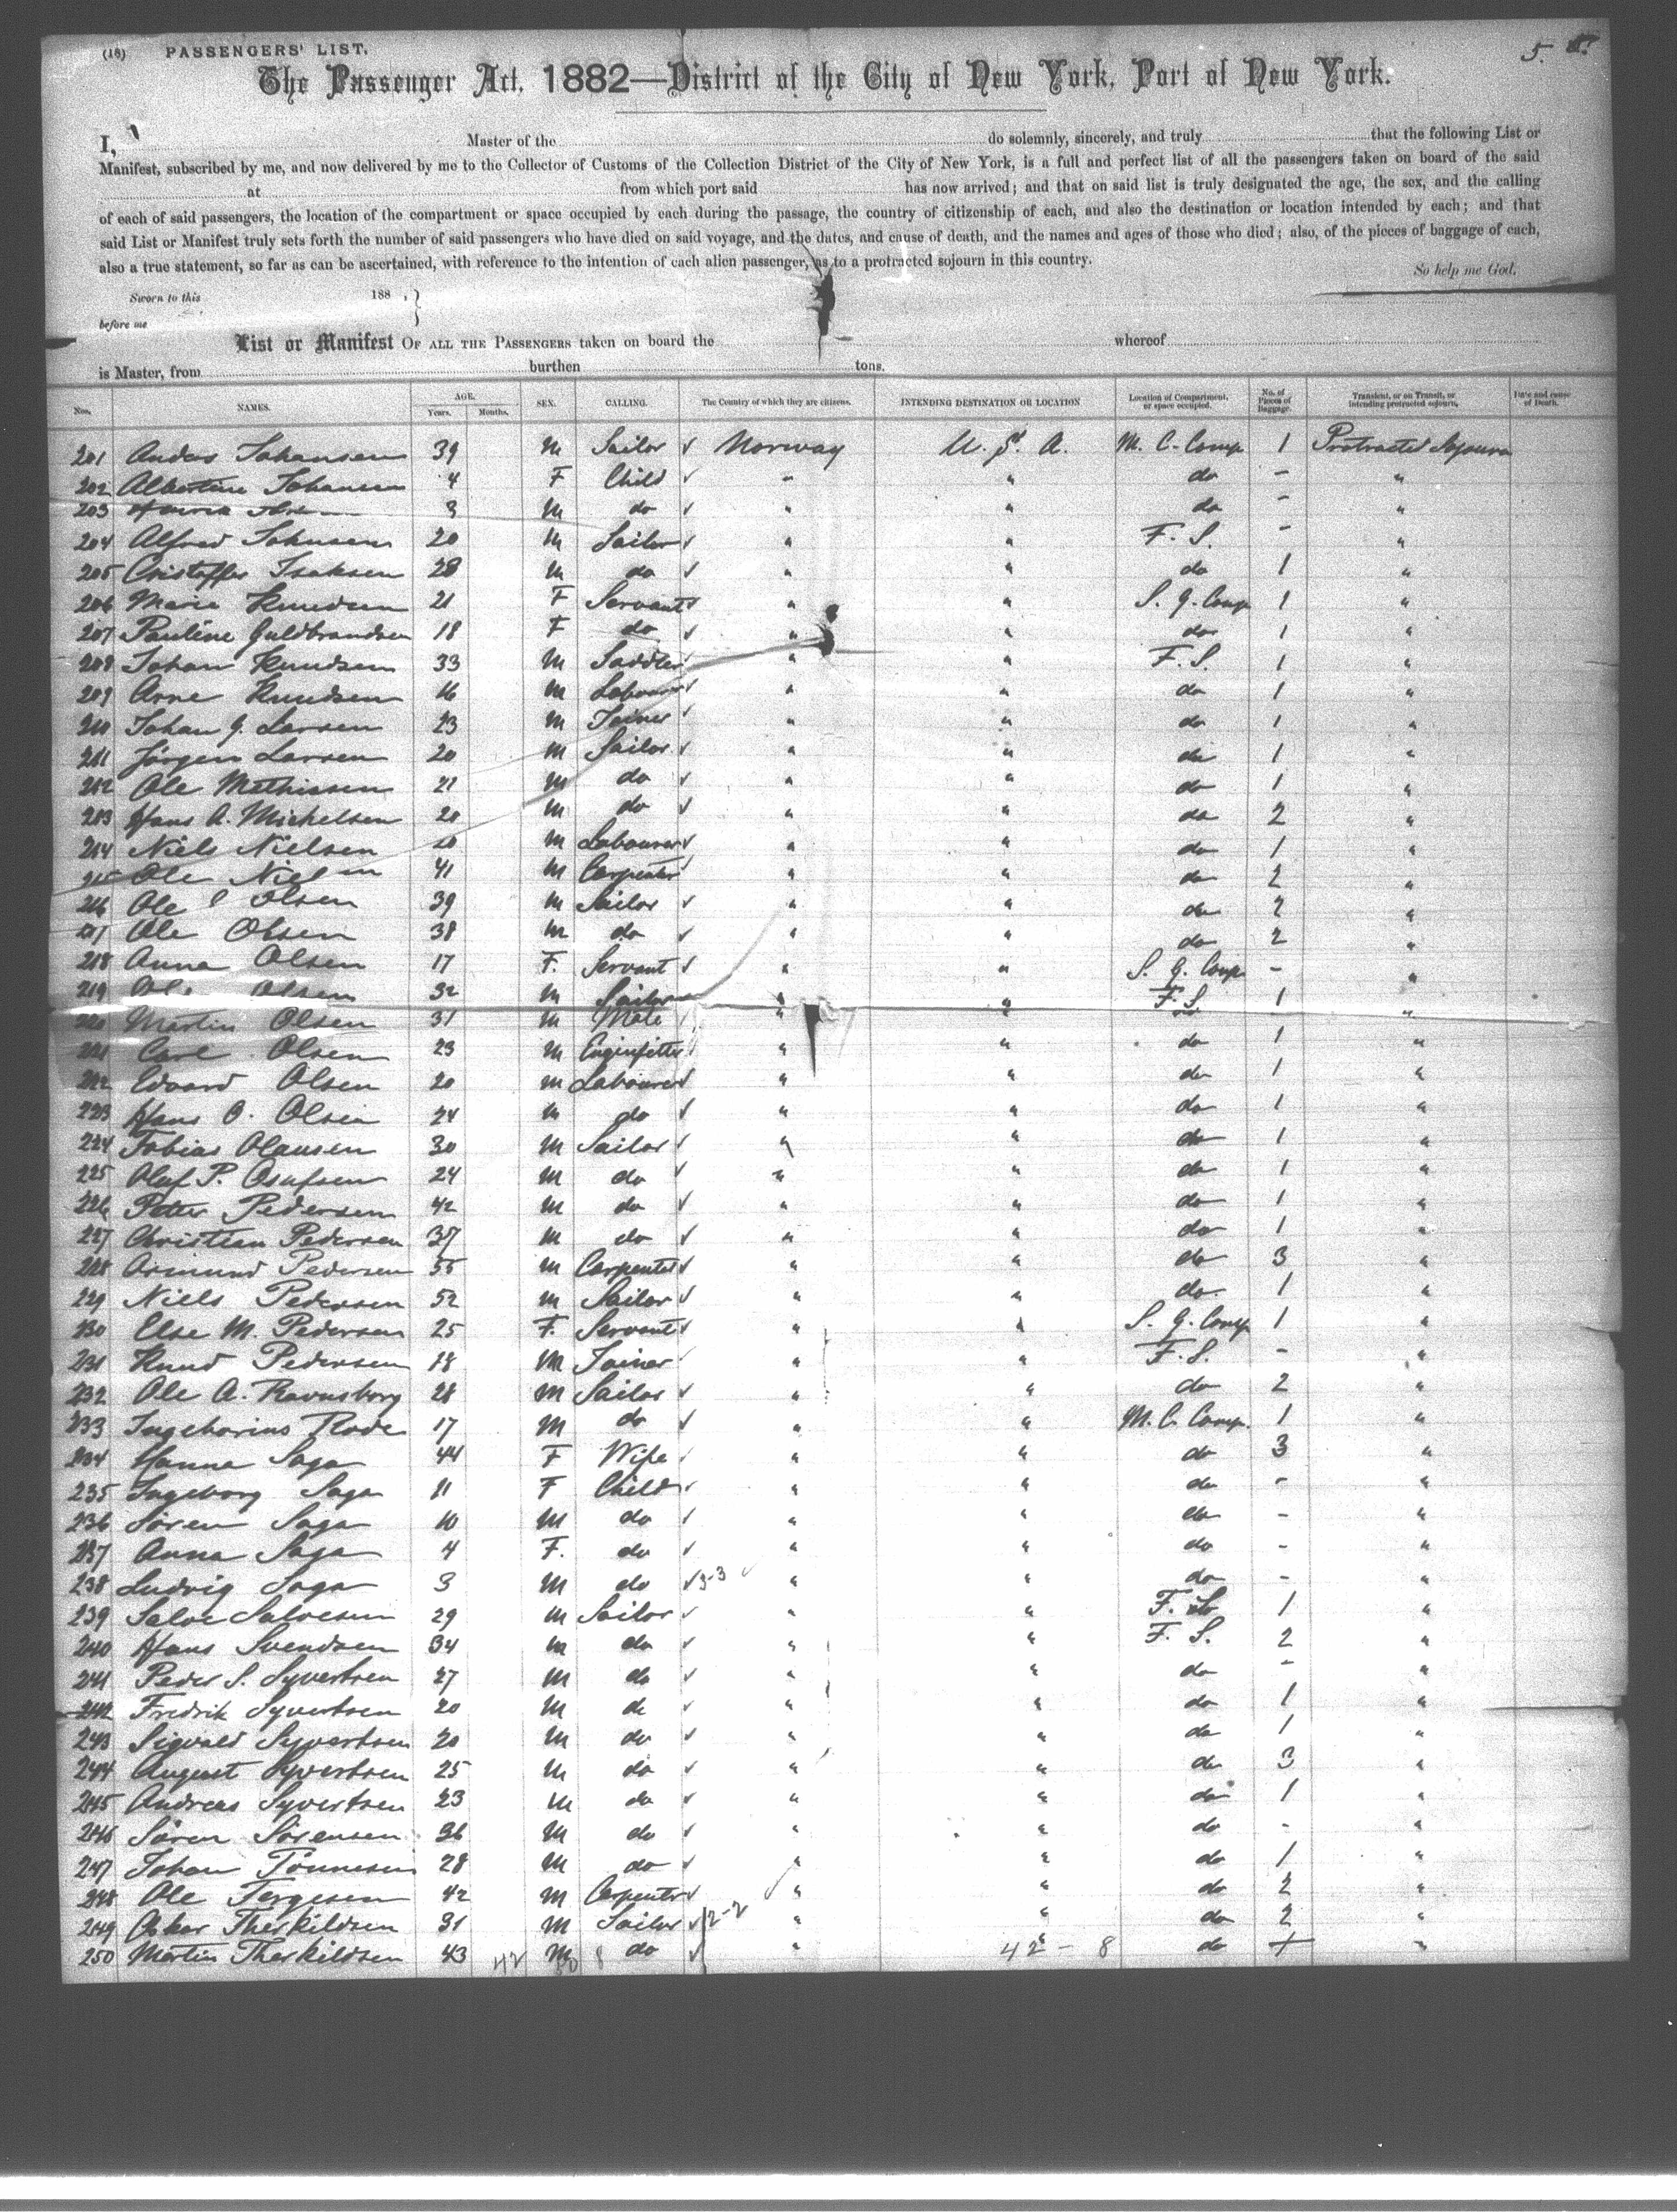 (18) PASSENGERS' LIST. 5.
The Passenger Act, 1882—District of the City of New York, Port of New York.
I, Master of the do solemnly, sincerely, and truly that the following List or
Manifest, subscribed by me, and now delivered by me to the Collector of Customs of the Collection District of the City of New York, is a full and perfect list of all the passengers taken on board of the said
at from which port said has now arrived; and that on said list is truly designated the age, the sex, and the calling
of each of said passengers, the location of the compartment or space occupied by each during the passage, the country of citizenship of each, and also the destination or location intended by each; and that
said List or Manifest truly sets forth the number of said passengers who have died on said voyage, and the dates, and cause of death, and the names and ages of those who died; also, of the pieces of baggage of each,
also a true statement, so far as can be ascertained, with reference to the intention of each alien passenger, as to a protracted sojourn in this country.
So help me God.
Sworn to this 188 , }
before me
List or Manifest OF ALL THE PASSENGERS taken on board the whereof
is Master, from burthen tons.
Nos. NAMES. AGE. Years. Months. SEX. CALLING. The Country of which they are citizens. INTENDING DESTINATION OR LOCATION Location of Compartment, or space occupied. No. of Pieces of Baggage. Transient, or on Transit, or intending protracted sojourn. Date and cause of Death.
201 Andas Johansen 39 M Sailor √ Norway U. S. A. M. C. Comp 1 Protracted Sojourn
202 Albertine Johansen 4 F Child √ " " do - "
203 3 M do √ " " do - "
204 Alfred Johnsen 20 M Sailor √ " " F. S. - "
205 Cristoffer Isaksen 28 M do √ " " do 1 "
206 Marie Knudsen 21 F Servant √ " " S. G. Comp 1 "
207 Pauline Guldbrandsen 18 F do √ " " do 1 "
208 Johan Knudsen 33 M Saddler " " F. S. 1 "
209 Arne Knudsen 16 M Labourer √ " " do 1 "
210 Johan G. Larsen 23 M Joiner √ " " do 1 "
211 Jörgen Larsen 20 M Sailor √ " " do 1 "
212 Ole Mathissen 21 M do √ " " do 1 "
213 Hans A. Michelsen 20 M do √ " " do 2 "
214 Niels Nielsen M Labourer √ " " do 1 "
215 Ole 41 M Carpenter √ " " do 2 "
216 Ole Olsen 39 M Sailor √ " " do 2 "
217 Ole Olsen 38 M do √ " " do 2 "
218 Anna Olsen 17 F. Servant √ " " S. G. Comp - "
219 Olsen 32 M Sailor " " F. S. 1 "
220 Martin Olsen 31 M Mate " " "
221 Carl Olsen 23 M Enginfitter " " do 1 "
222 Edvard Olsen 20 M Labourer √ " " do 1 "
223 Hans O. Olsen 24 M do √ " " do 1 "
224 Tobias Olausen 30 M Sailor √ " " do 1 "
225 Oluf P. Osufsen 24 M do √ " " do 1 "
226 Petter Pedersen 42 M do √ " " do 1 "
227 Christian Pedersen 37 M do √ " " do 1 "
228 Asmund Pedersen 55 M Carpenter √ " " do 3 "
229 Niels Pedersen 52 M Sailor √ " " do. 1 "
230 Else M. Pedersen 25 F. Servant √ " " S. G. Comp 1 "
231 Knud Pedersen 18 M Joiner " " F. S. - "
232 Ole A. Ravnsborg 28 M Sailor √ " " do 2 "
233 Ingeborius Rode 17 M do √ " " M. C. Comp. 1 "
234 Hanna Saga 44 F Wife √ " " do 3 "
235 Ingeborg Saga 11 F Child √ " " do - "
236 Sören Saga 10 M do √ " " do - "
237 Anna Saga 4 F. do √ " " do - "
238 Ludvig Saga 3 M do √ 3-3 √ " " do - "
239 Salve Salvesen 29 M Sailor √ " " F. 1 "
240 Hans Svendsen 34 M do √ " " F. S. 2 "
241 Peder S. Syvertsen 27 M do √ " " do - "
242 Fredrik Syvertsen 20 M do √ " " do 1 "
243 Sigvald Syvertsen 20 M do √ " " do 1 "
244 August Syvertsen 25 M do √ " " do 3 "
245 Andreas Syvertsen 23 M do √ " " do 1 "
246 Sören Sörensen 36 M do √ " " do - "
247 Johan Tönnesen 28 M do √ " " do 1 "
248 Ole Tergesen 42 M Carpenter √ " " do 2 "
249 Therkildsen 31 M Sailor √ 2-2 " " do 2 "
250 Martin Therkildsen 43 M do √ " " do "
42 8 42 - 8